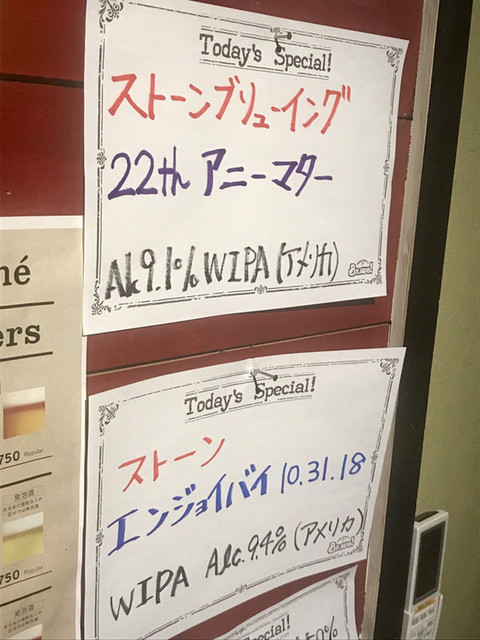 Today's Special!
ストーンブリューイング
22th アニーマター
Alc 9.1% WIPA (アメリカ)
BRAVO!
Today's Special!
ストーン
エンジョイバイ 10.31.18
WIPA Alc.9.4% (アメリカ)
BRAVO!
Today's Special!
né
ers
750 Regular
発泡酒
750 Regular
発泡酒